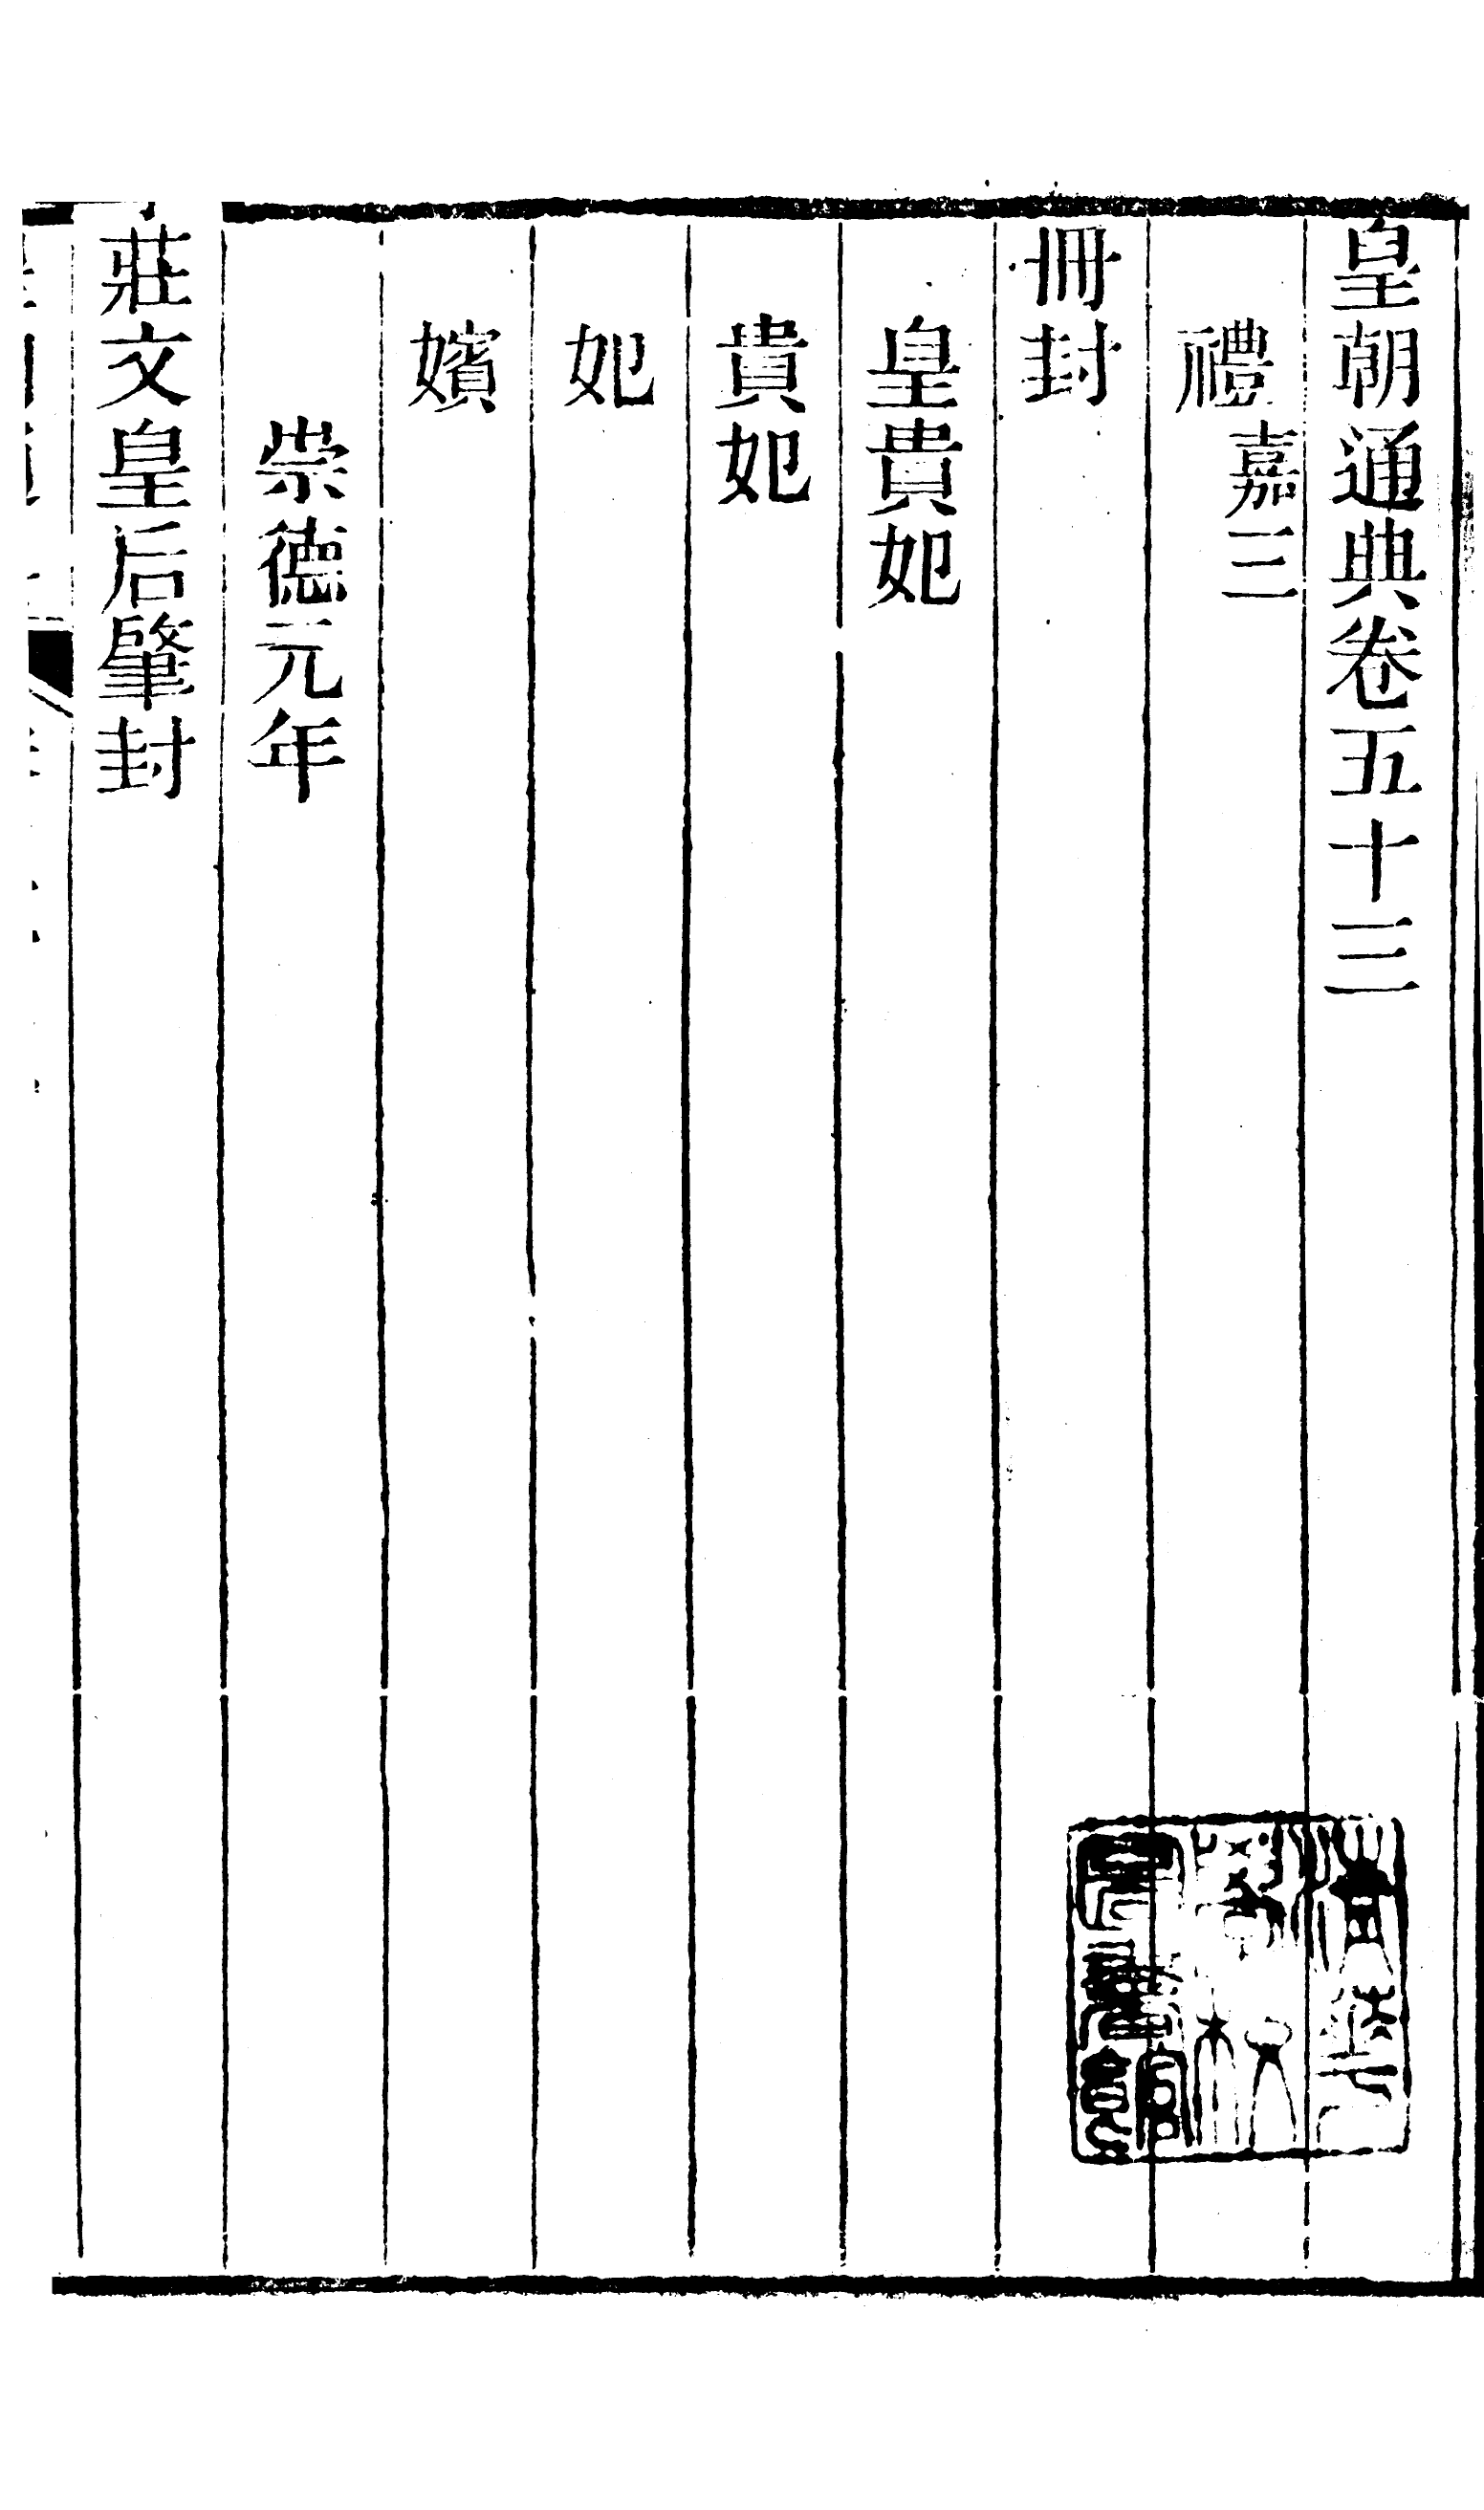 皇朝通典卷五十三
禮嘉三
冊封
皇貴妃
貴妃
妃
嬪
崇德元年
莊文皇后肇封
清華
學校
圖書館